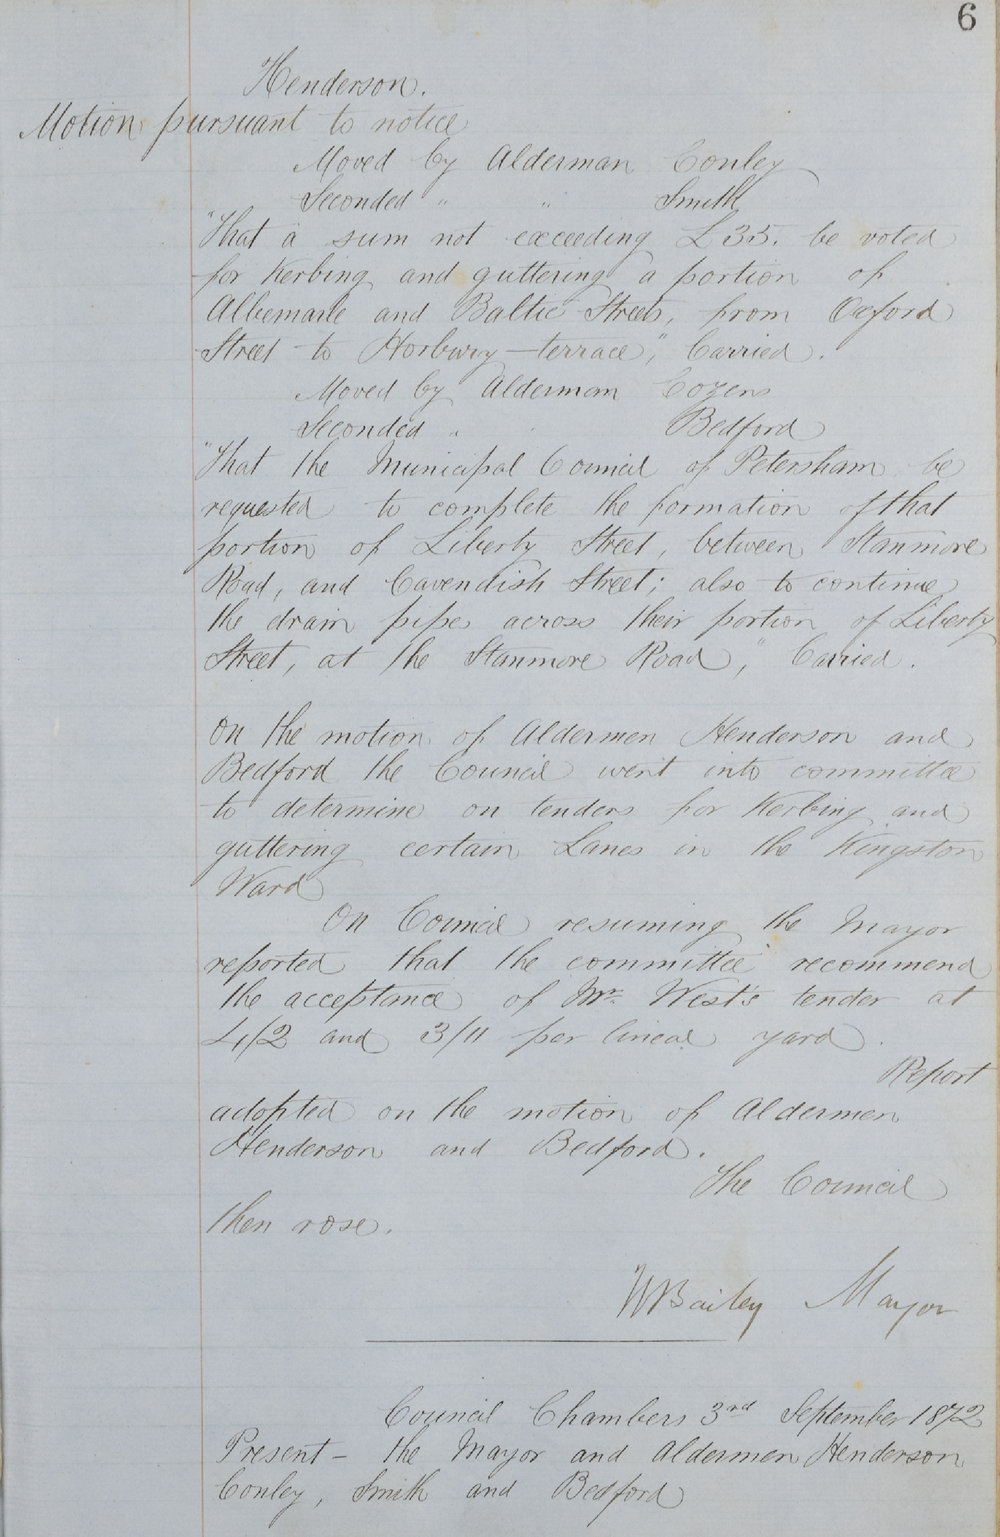 6
Henderson.
Motion pursuant to notice
Moved by Alderman Conley
Seconded " " Smith
"That a sum not exceeding £35. be voted
for Kerbing and guttering a portion of
Albemarle and Baltic Streets, from Oxford
Street to Horbury-terrace," Carried.
Moved by Alderman Cozens
Seconded " " Bedford
"That the Municipal Council of Petersham be
requested to complete the formation of that
portion of Liberty Street, between Stanmore
Road, and Cavendish Street; also to continue
the drain pipe across their portion of Liberty
Street, at the Stanmore Road," Carried.
On the motion of Aldermen Henderson and
Bedford the Council went into committee
to determine on tenders for Kerbing and
guttering certain Lanes in the Kingston
Ward
On Council resuming the Mayor
reported that the committee recommend
the acceptance of Mr. West's tender at
4/2 and 3/11 per lineal yard.
Report
adopted on the motion of Aldermen
Henderson and Bedford.
The Council
then rose.
W Bailey Mayor
Council Chambers 3rd September 1872
Present - the Mayor and Aldermen Henderson
Conley, Smith and Bedford